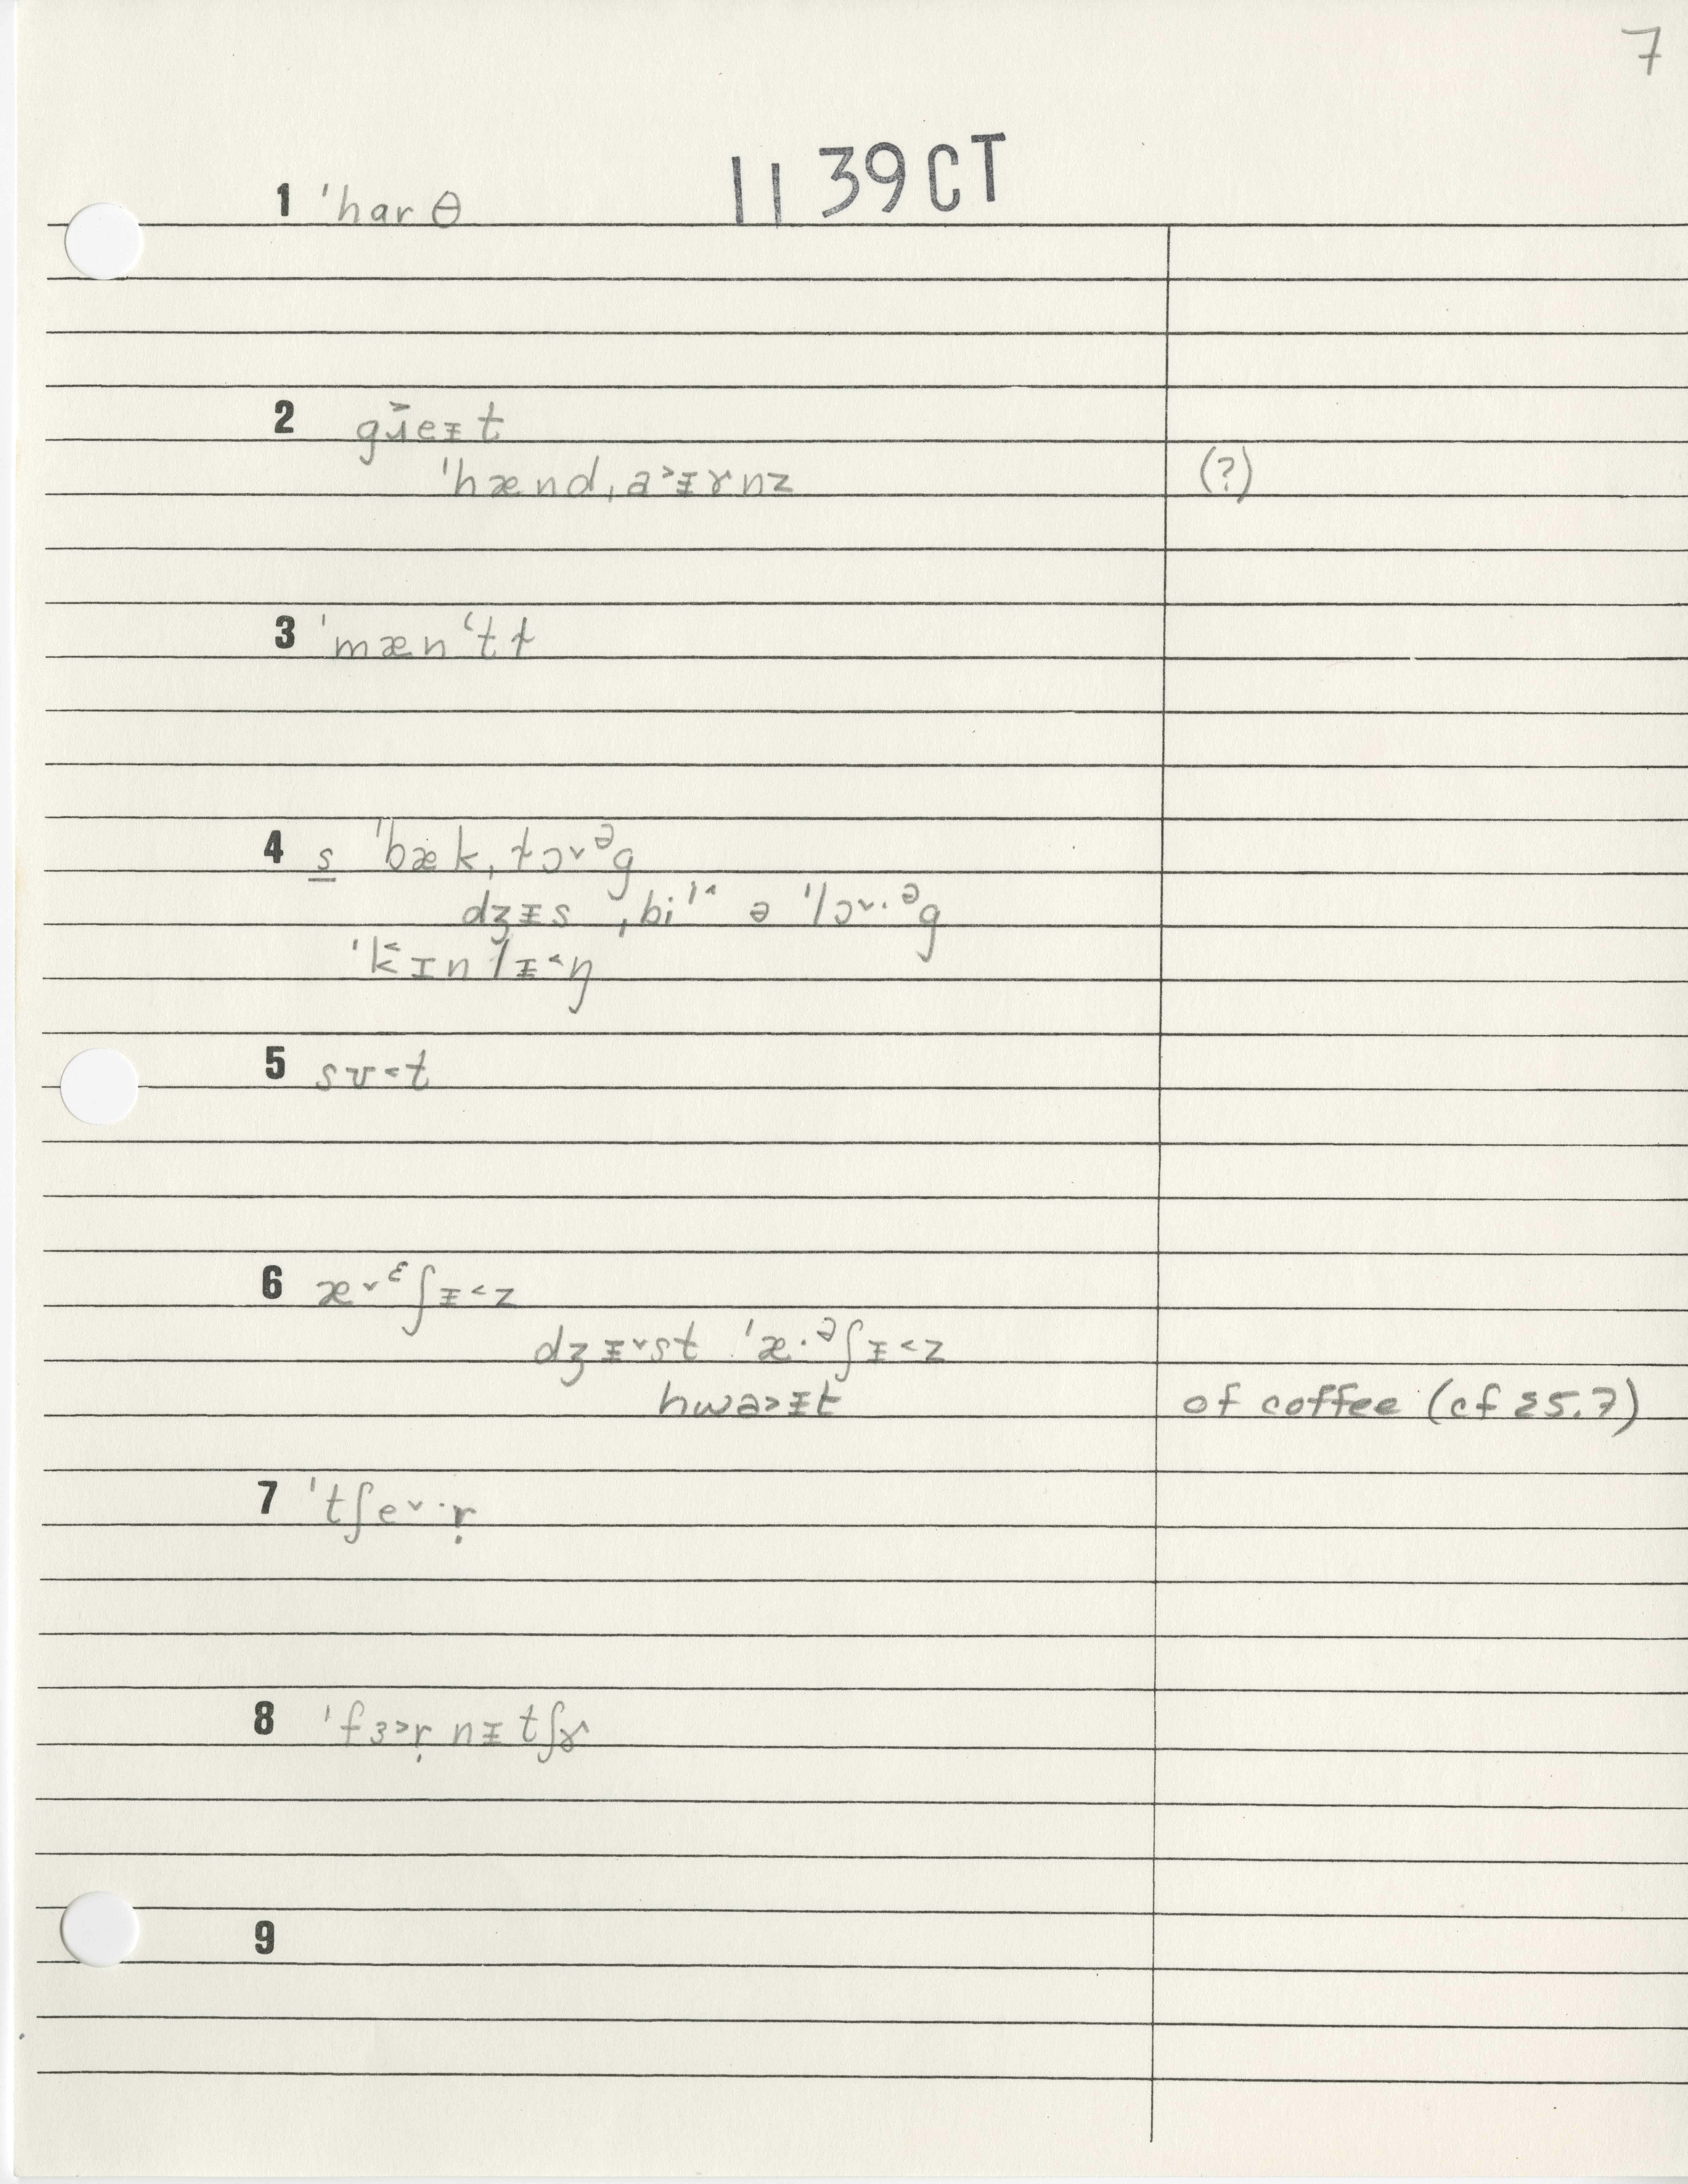 7
11 39CT
1 ˈharθ
2 gɹ̌eᵻt
ˈhænd,a˃ᵻɤnz (?)
3 ˈmæn ʻtɫ
4 s̲ ˈbæk,ɫɔ˅ᵊg
dʒᵻs ,biˈˈ^ ə ˈlɔ˅·ᵊg
ˈk̆ɪnlᵻ˂ŋ
5 sʊ˂t
6 æ˅ᵋʃᵻ˂z
dʒᵻ˅st ˈæ·ᵊʃᵻ˂z
hwa˃ᵻt of coffee (cf 25.7)
7 ˈtʃe˅·ṛ
8 ˈfɜ˃ṛnᵻtʃɚ^
9